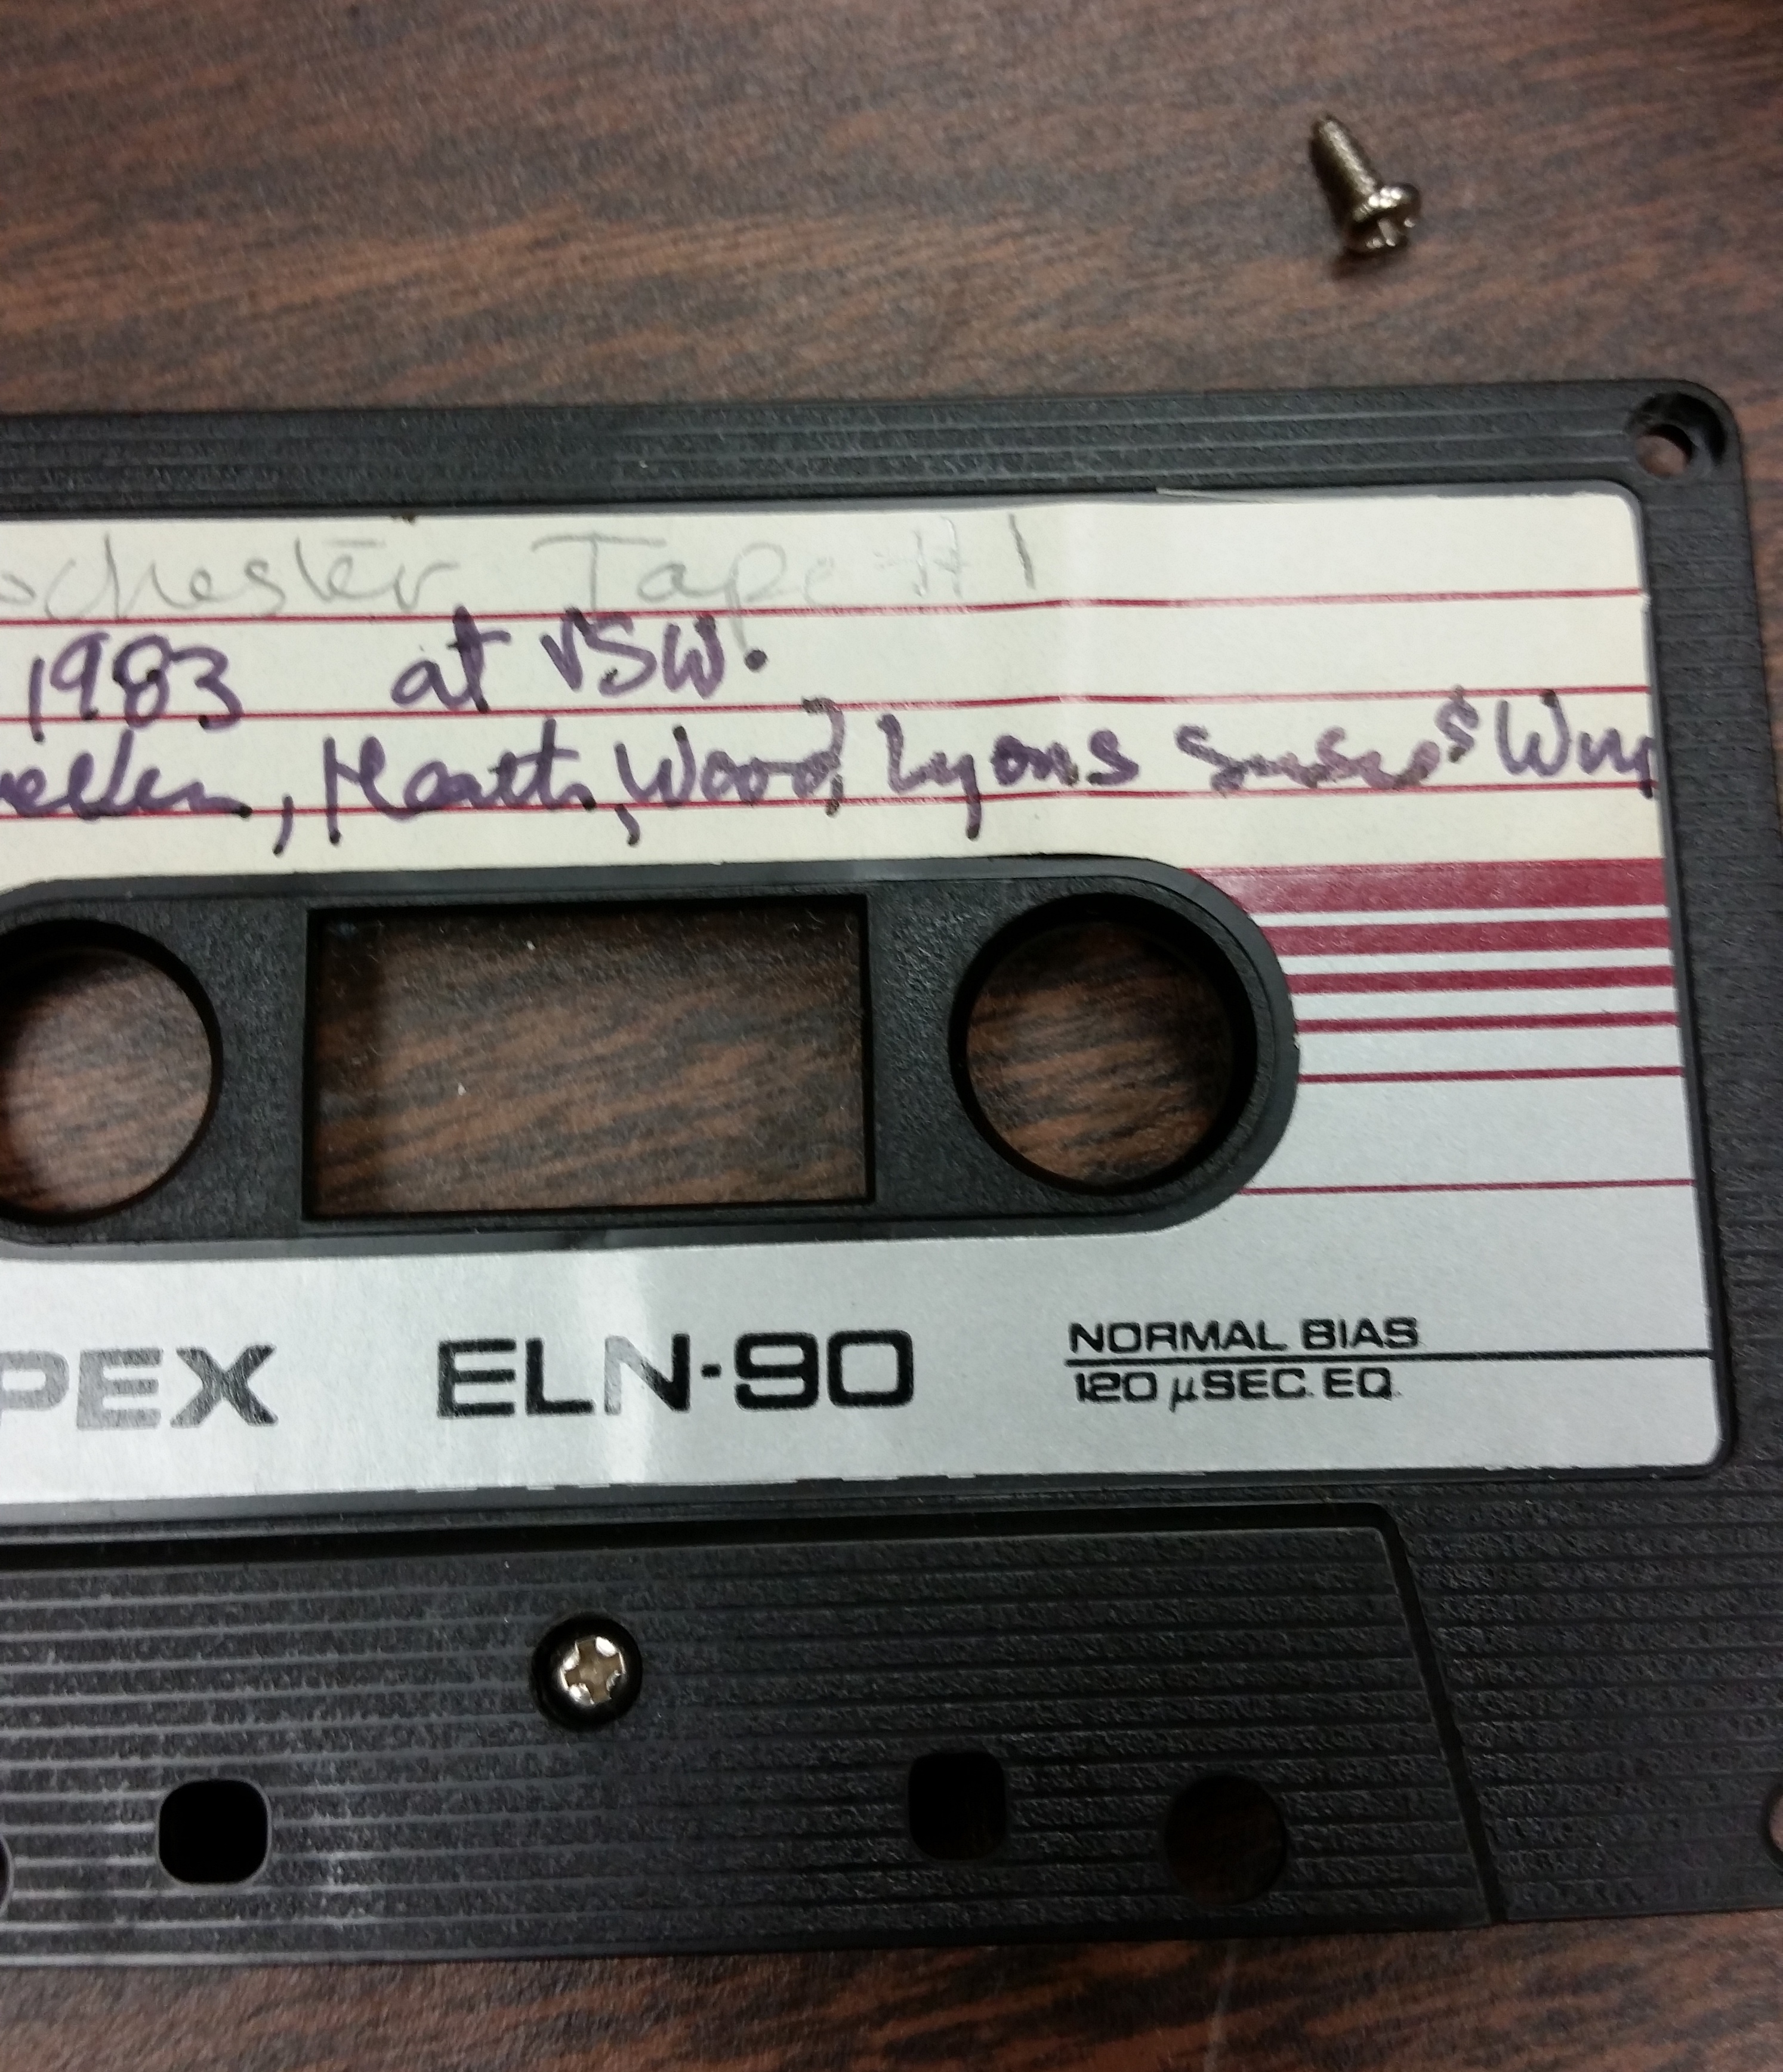 ochester Tape #1
1983 at VSW.
wellen, Heath, Wood, Lyons
PEX ELN-90
NORMAL BIAS
120 µSEC. EQ.